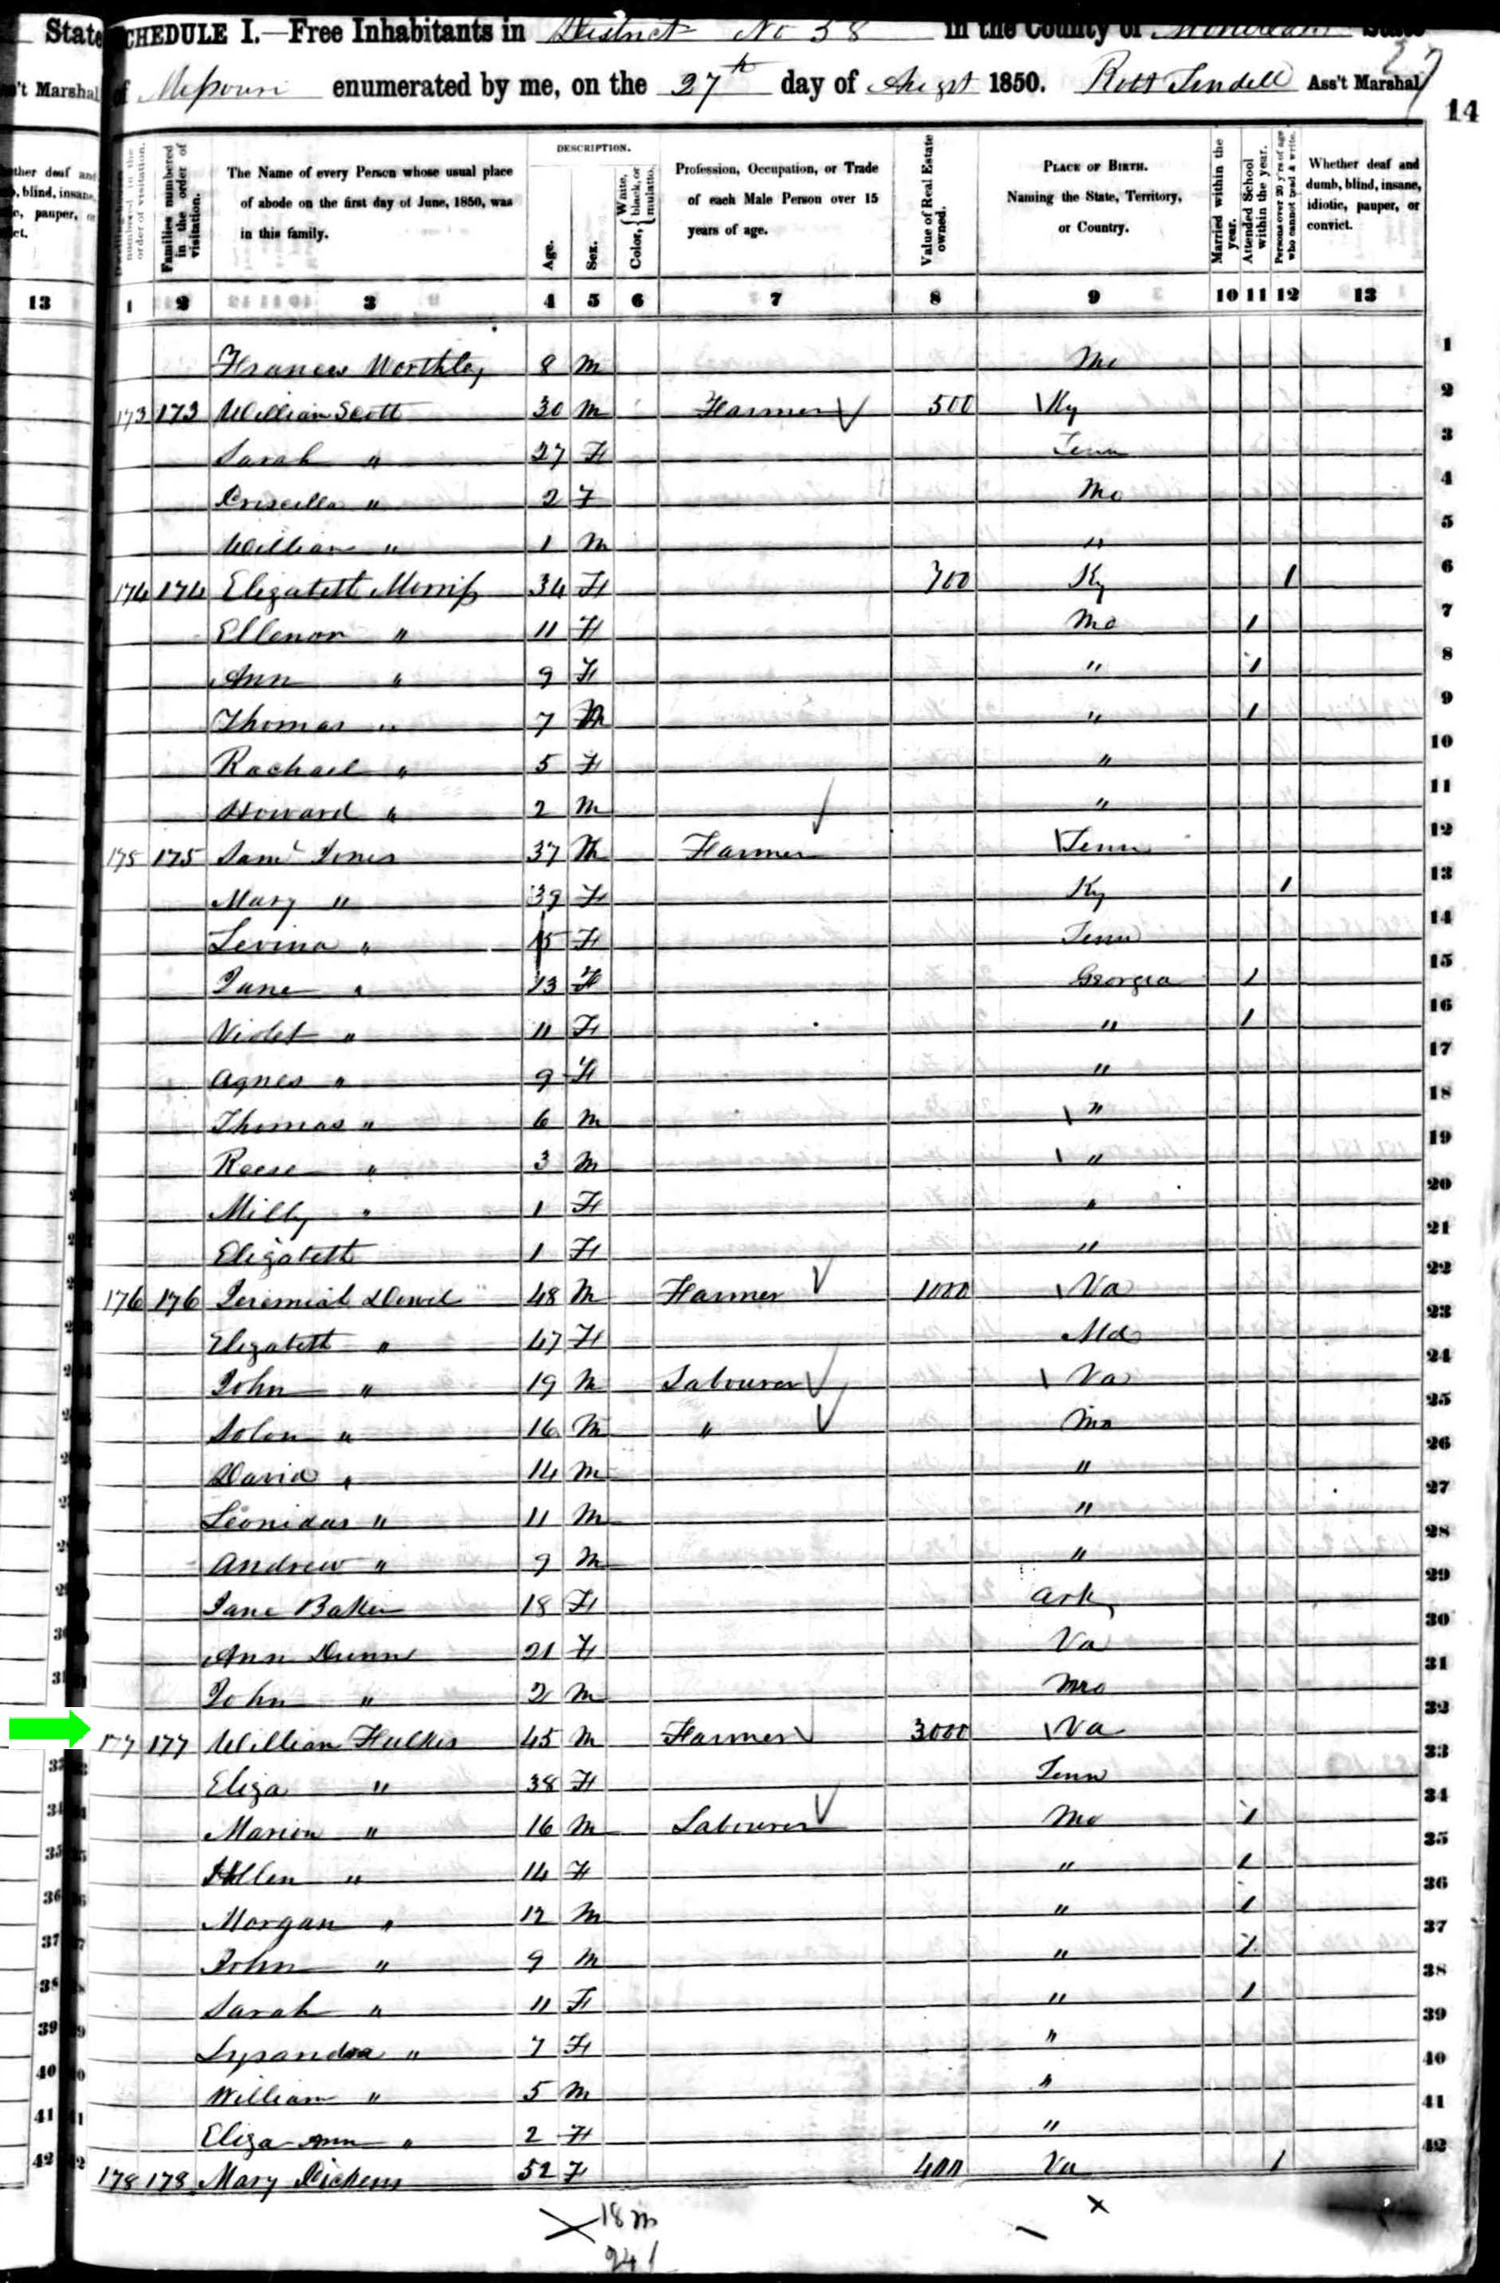 State SCHEDULE I.—Free Inhabitants in District No 38 in the County of State
ss't Marshal of Missouri enumerated by me, on the 27th day of August 1850. Robt Tindell Ass't Marshal
14
DESCRIPTION.
Dwelling-houses numbered in the order of visitation.
Families numbered in the order of visitation.
The Name of every Person whose usual place of abode on the first day of June, 1850, was in this family.
Age.
Sex.
Color, { White, black, or mulatto.
Profession, Occupation, or Trade of each Male Person over 15 years of age.
Value of Real Estate owned.
PLACE OF BIRTH. Naming the State, Territory, or Country.
Married within the year.
Attended School within the year.
Persons over 20 y'rs of age who cannot read & write.
Whether deaf and dumb, blind, insane, idiotic, pauper, or convict.
13 1 2 3 4 5 6 7 8 9 10 11 12 13
Frances Worthley 8 M Mo 1
173 173 William Scott 30 M Farmer 500 Ky 2
Sarah " 27 F Tenn 3
Priscilla " 2 F Mo 4
William " 1 M " 5
174 174 Elizabeth Morriss 34 F 700 Ky 1 6
Ellenor " 11 F Mo 1 7
Ann " 9 F " 1 8
Thomas " 7 M " 1 9
Rachael " 5 F " 10
Howard " 2 M " 11
175 175 Saml Jones 37 M Farmer Tenn 12
Mary " 39 F Ky 1 13
Levina " 15 F Tenn 14
Jane " 13 F Georgia 1 15
Violet " 11 F " 1 16
Agnes " 9 F " 17
Thomas " 6 M " 18
Reese " 3 M " 19
Milly " 1 F " 20
Elizabeth 1 F " 21
176 176 Jeremiah Dowd 48 M Farmer 1000 Va 22
Elizabeth " 47 F Md 23
John " 19 M Labourer Va 24
Solon " 16 M " Mo 25
David " 14 M " 26
Leonidas " 11 M " 27
Andrew " 9 M " 28
Jane Baker 18 F Ark 29
Ann Dunn 21 F Va 30
John " 2 M Mo 31
177 177 William Hulkis 45 M Farmer 3000 Va 32
Eliza " 38 F Tenn 33
Marion " 16 M Labourer Mo 1 34
Hellen " 14 F " 1 35
Morgan " 12 M " 1 36
John " 9 M " 1 37
Sarah " 11 F " 1 38
Lysandra " 7 F " 39
William " 5 M " 40
Eliza Ann " 2 F " 41
178 178 Mary Dickens 52 F 400 Va 1 42
18 m
24 f